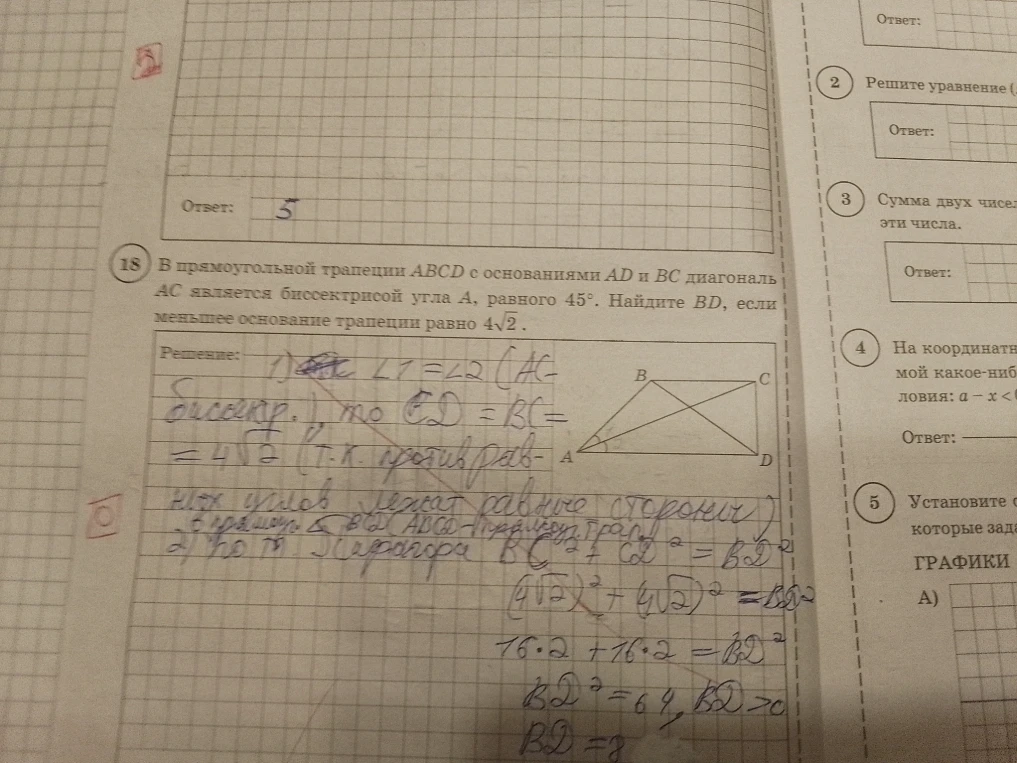 Ответ:
5
18 В прямоугольной трапеции ABCD с основаниями AD и BC диагональ
AC является биссектрисой угла A, равного 45°. Найдите BD, если
меньшее основание трапеции равно 4√2.
Решение:
1) ∠1 = ∠2 (AC-
биссектр.), то CD = BC =
= 4√2 (т.к. против рав-
ных углов лежат равные стороны)
2) по т Пифагора BC² + CD² = BD²
(4√2)² + (4√2)² = BD²
16·2 + 16·2 = BD²
BD² = 64, BD > 0
BD = 8
B
C
A
D
Ответ:
2 Решите уравнение (
Ответ:
3 Сумма двух чисел
эти числа.
Ответ:
4 На координатн
мой какое-ниб
ловия: a − x <
Ответ:
5 Установите с
которые зада
ГРАФИКИ
А)